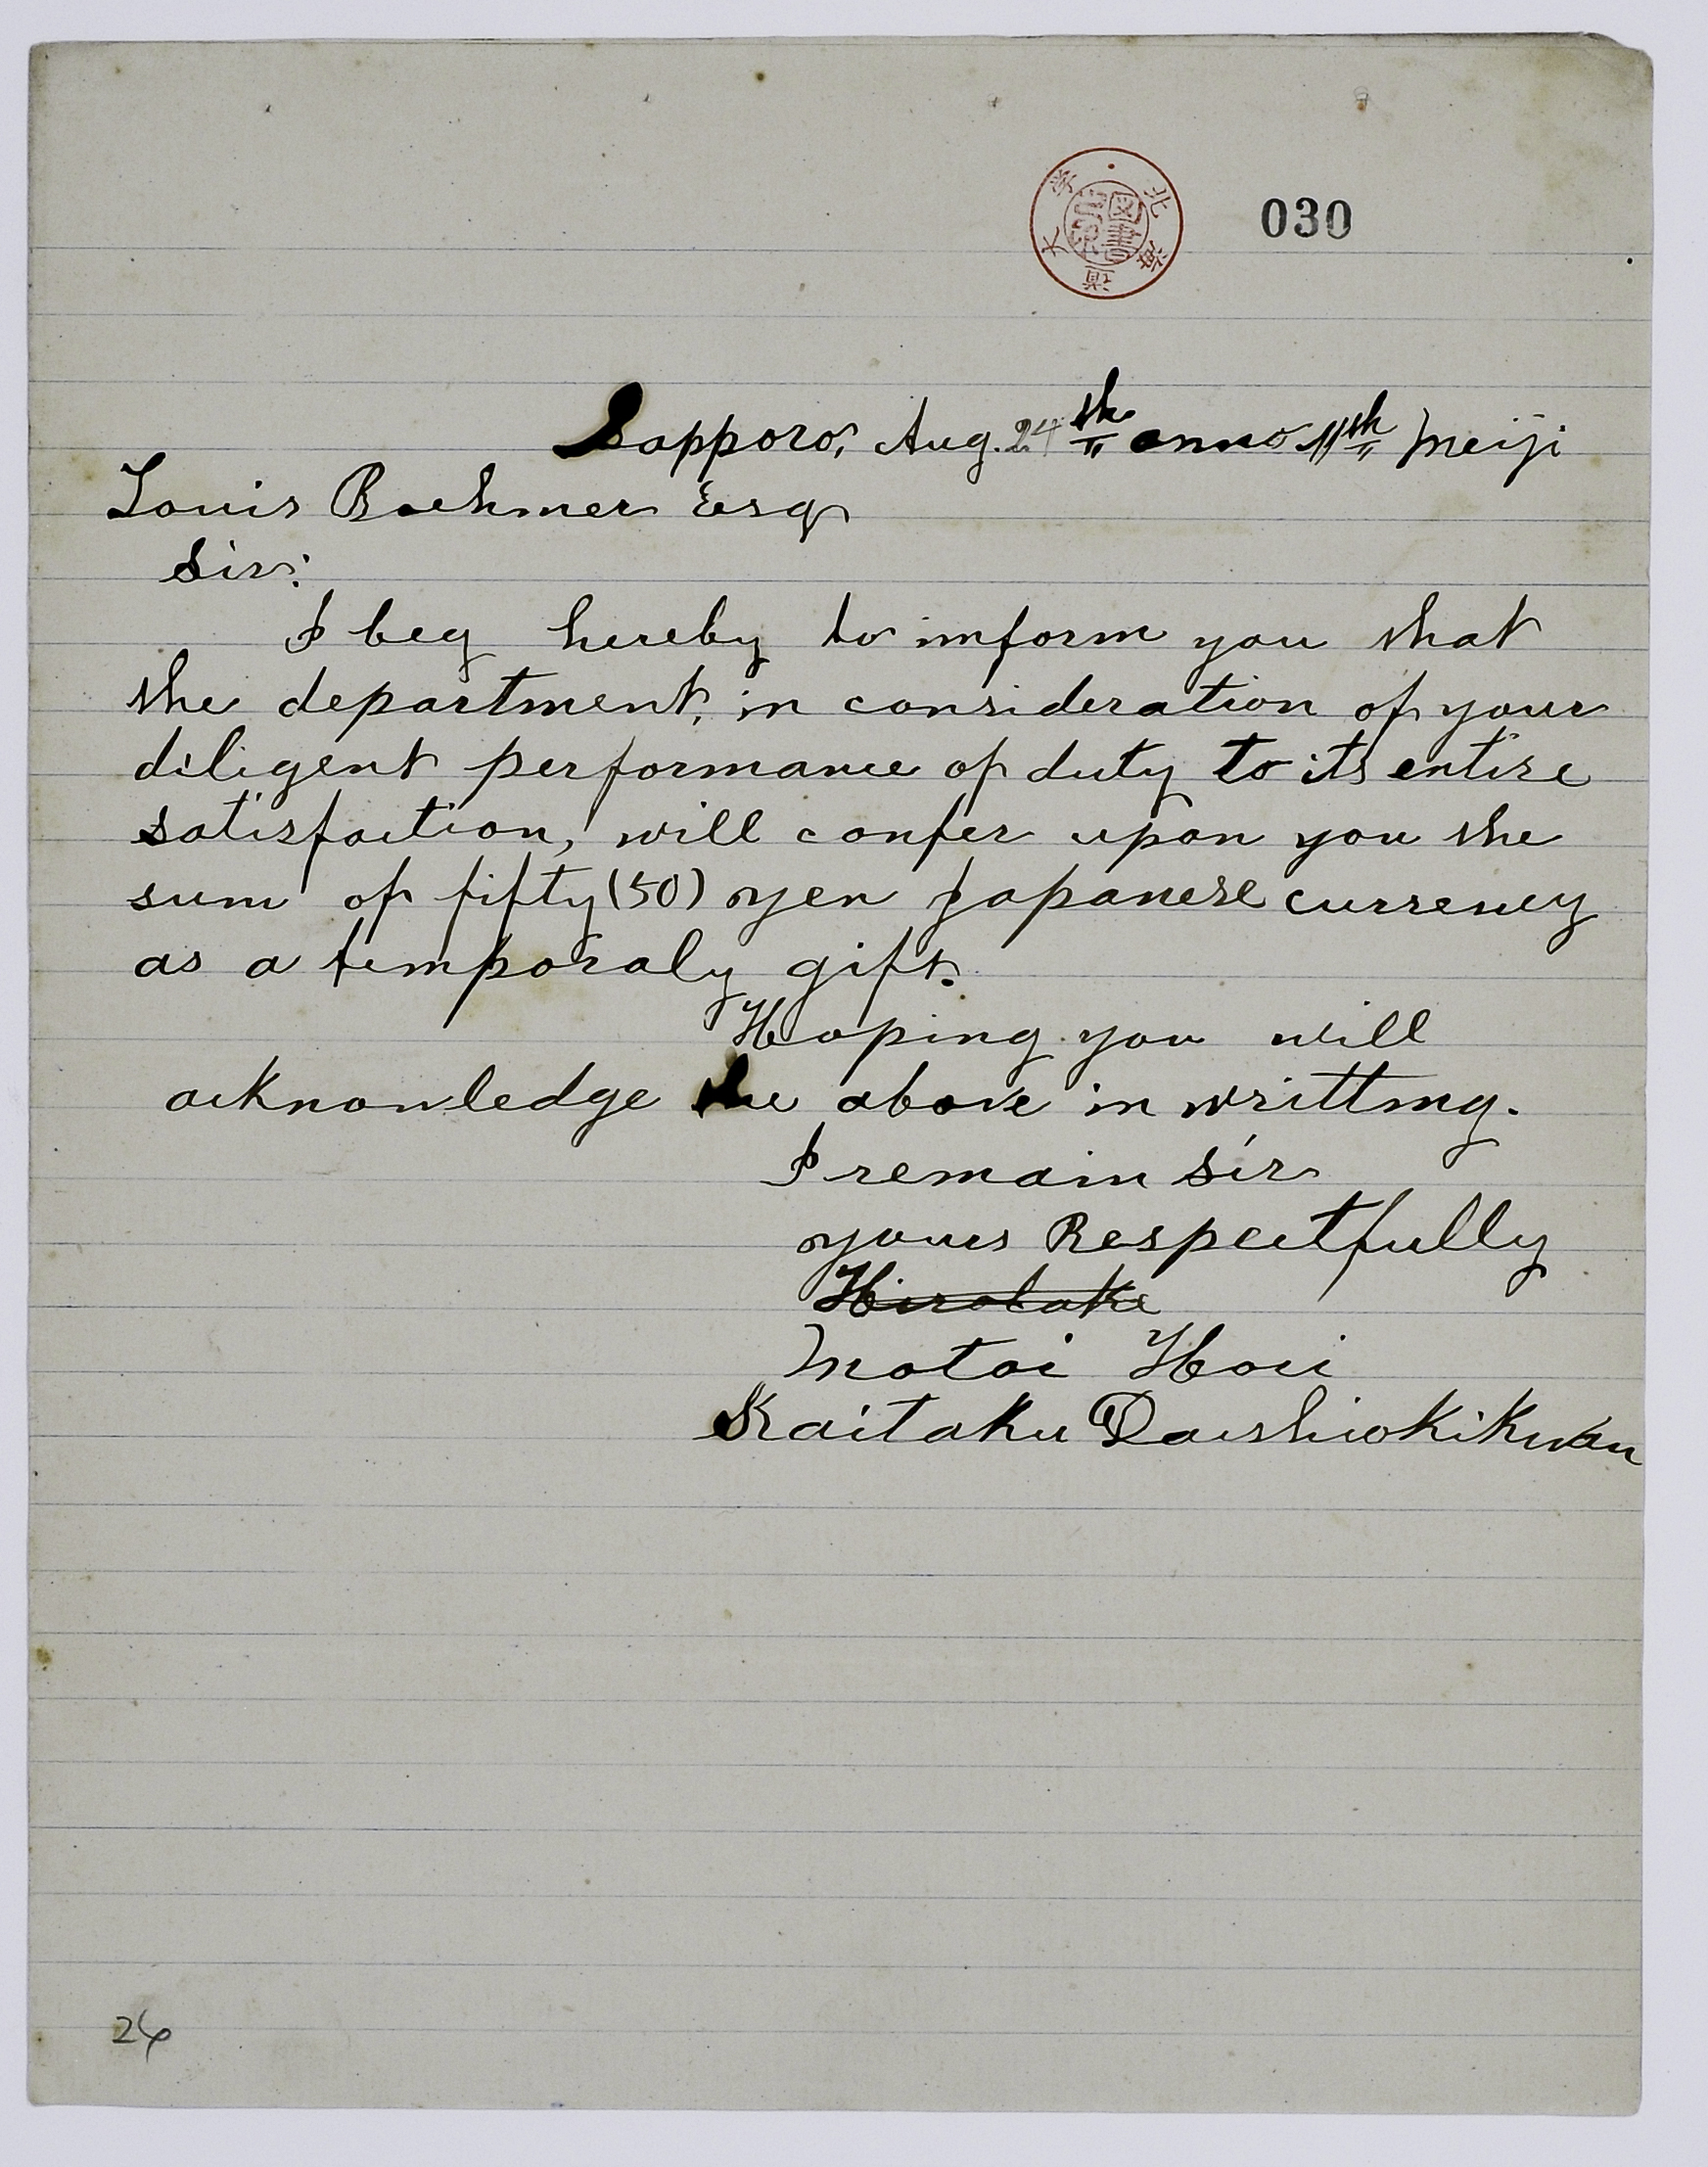 北海道大学
図書
030
Sapporo, Aug. 24th anno 11th Meiji
Louis Boehmer Esq
Sir:
I beg hereby to imform you that
the department, in consideration of your
diligent performance of duty to its entire
satisfaction, will confer upon you the
sum of fifty (50) yen Japanese currency
as a temporaly gift.
Hoping you will
acknowledge the above in writting.
I remain Sir
yours Respectfully
Motoi Hori
Kaitaku Daishiokikwan
26